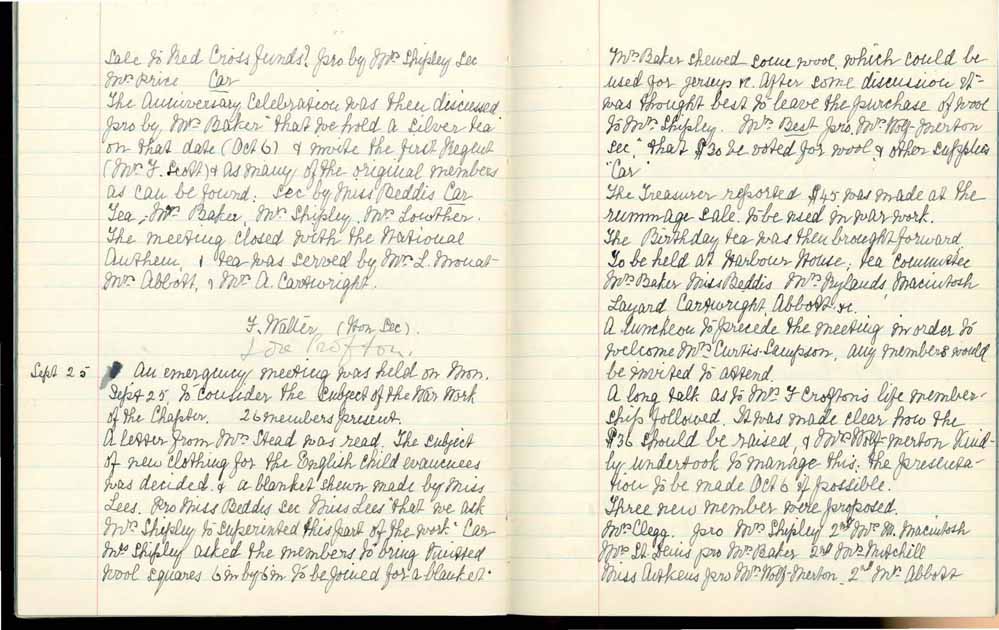 Sale to Red Cross funds? pro by Mrs Shipley Sec
Mrs Price Car
The Anniversary Celebration was then discussed
pro by, Mrs Baker "that we hold a silver tea
on that date (Oct 6) & invite the first Regent
(Mrs F. Scott) & as many of the original members
as can be found. Sec by Miss Beddis Car
Tea, Mrs Baker, Mrs Shipley, Mrs Lowther.
The meeting closed with the National
Anthem, & tea was served by Mrs L. Mouat
Mrs Abbott, & Mrs A. Cartwright.
F. Walter (Hon Sec).
Crofton.
Sept 25 An emergency meeting was held on Mon.
Sept 25, to consider the subject of the War Work
of the Chapter. 26 members present.
A letter from Mrs Stead was read. The subject
of new clothing for the English child evacuees
was decided. & a blanket shewn made by Miss
Lees. Pro Miss Beddis Sec Miss Lees "that we ask
Mrs Shipley to superinted this part of the work" Car
Mrs Shipley asked the members to bring knitted
wool squares 6in by 6in to be joined for a blanket.
Mrs Baker shewed some wool, which could be
used for jerseys &c. After some discussion it
was thought best to leave the purchase of wool
to Mrs Shipley. Mrs Best pro, Mrs Wolf-Merton
Sec, "that $30 be voted for wool & other supplies
"Car"
The Treasurer reported $45 was made at the
rummage sale. to be used in war work.
The Birthday tea was then brought forward,
To be held at Harbour House; tea committee
Mrs Baker Miss Beddis Mrs Rylands, Macintosh
Layard Cartwright, Abbott &c.
A luncheon to precede the meeting in order to
welcome Mrs Curtis-Sampson, any members would
be invited to attend.
A long talk as to Mrs F Crofton's life member-
ship followed. It was made clear how the
$36 should be raised, & Mrs Wolf-Merton kind-
ly undertook to manage this. the presenta-
tion to be made Oct 6 if possible.
Three new member were proposed.
Mrs Clegg. pro Mrs Shipley 2nd Mrs M. Macintosh
Mrs St. Denis pro Mrs Baker 2nd Mrs Mitchill
Miss Aitkens pro Mrs Wolf-Merton. 2nd Mrs Abbott